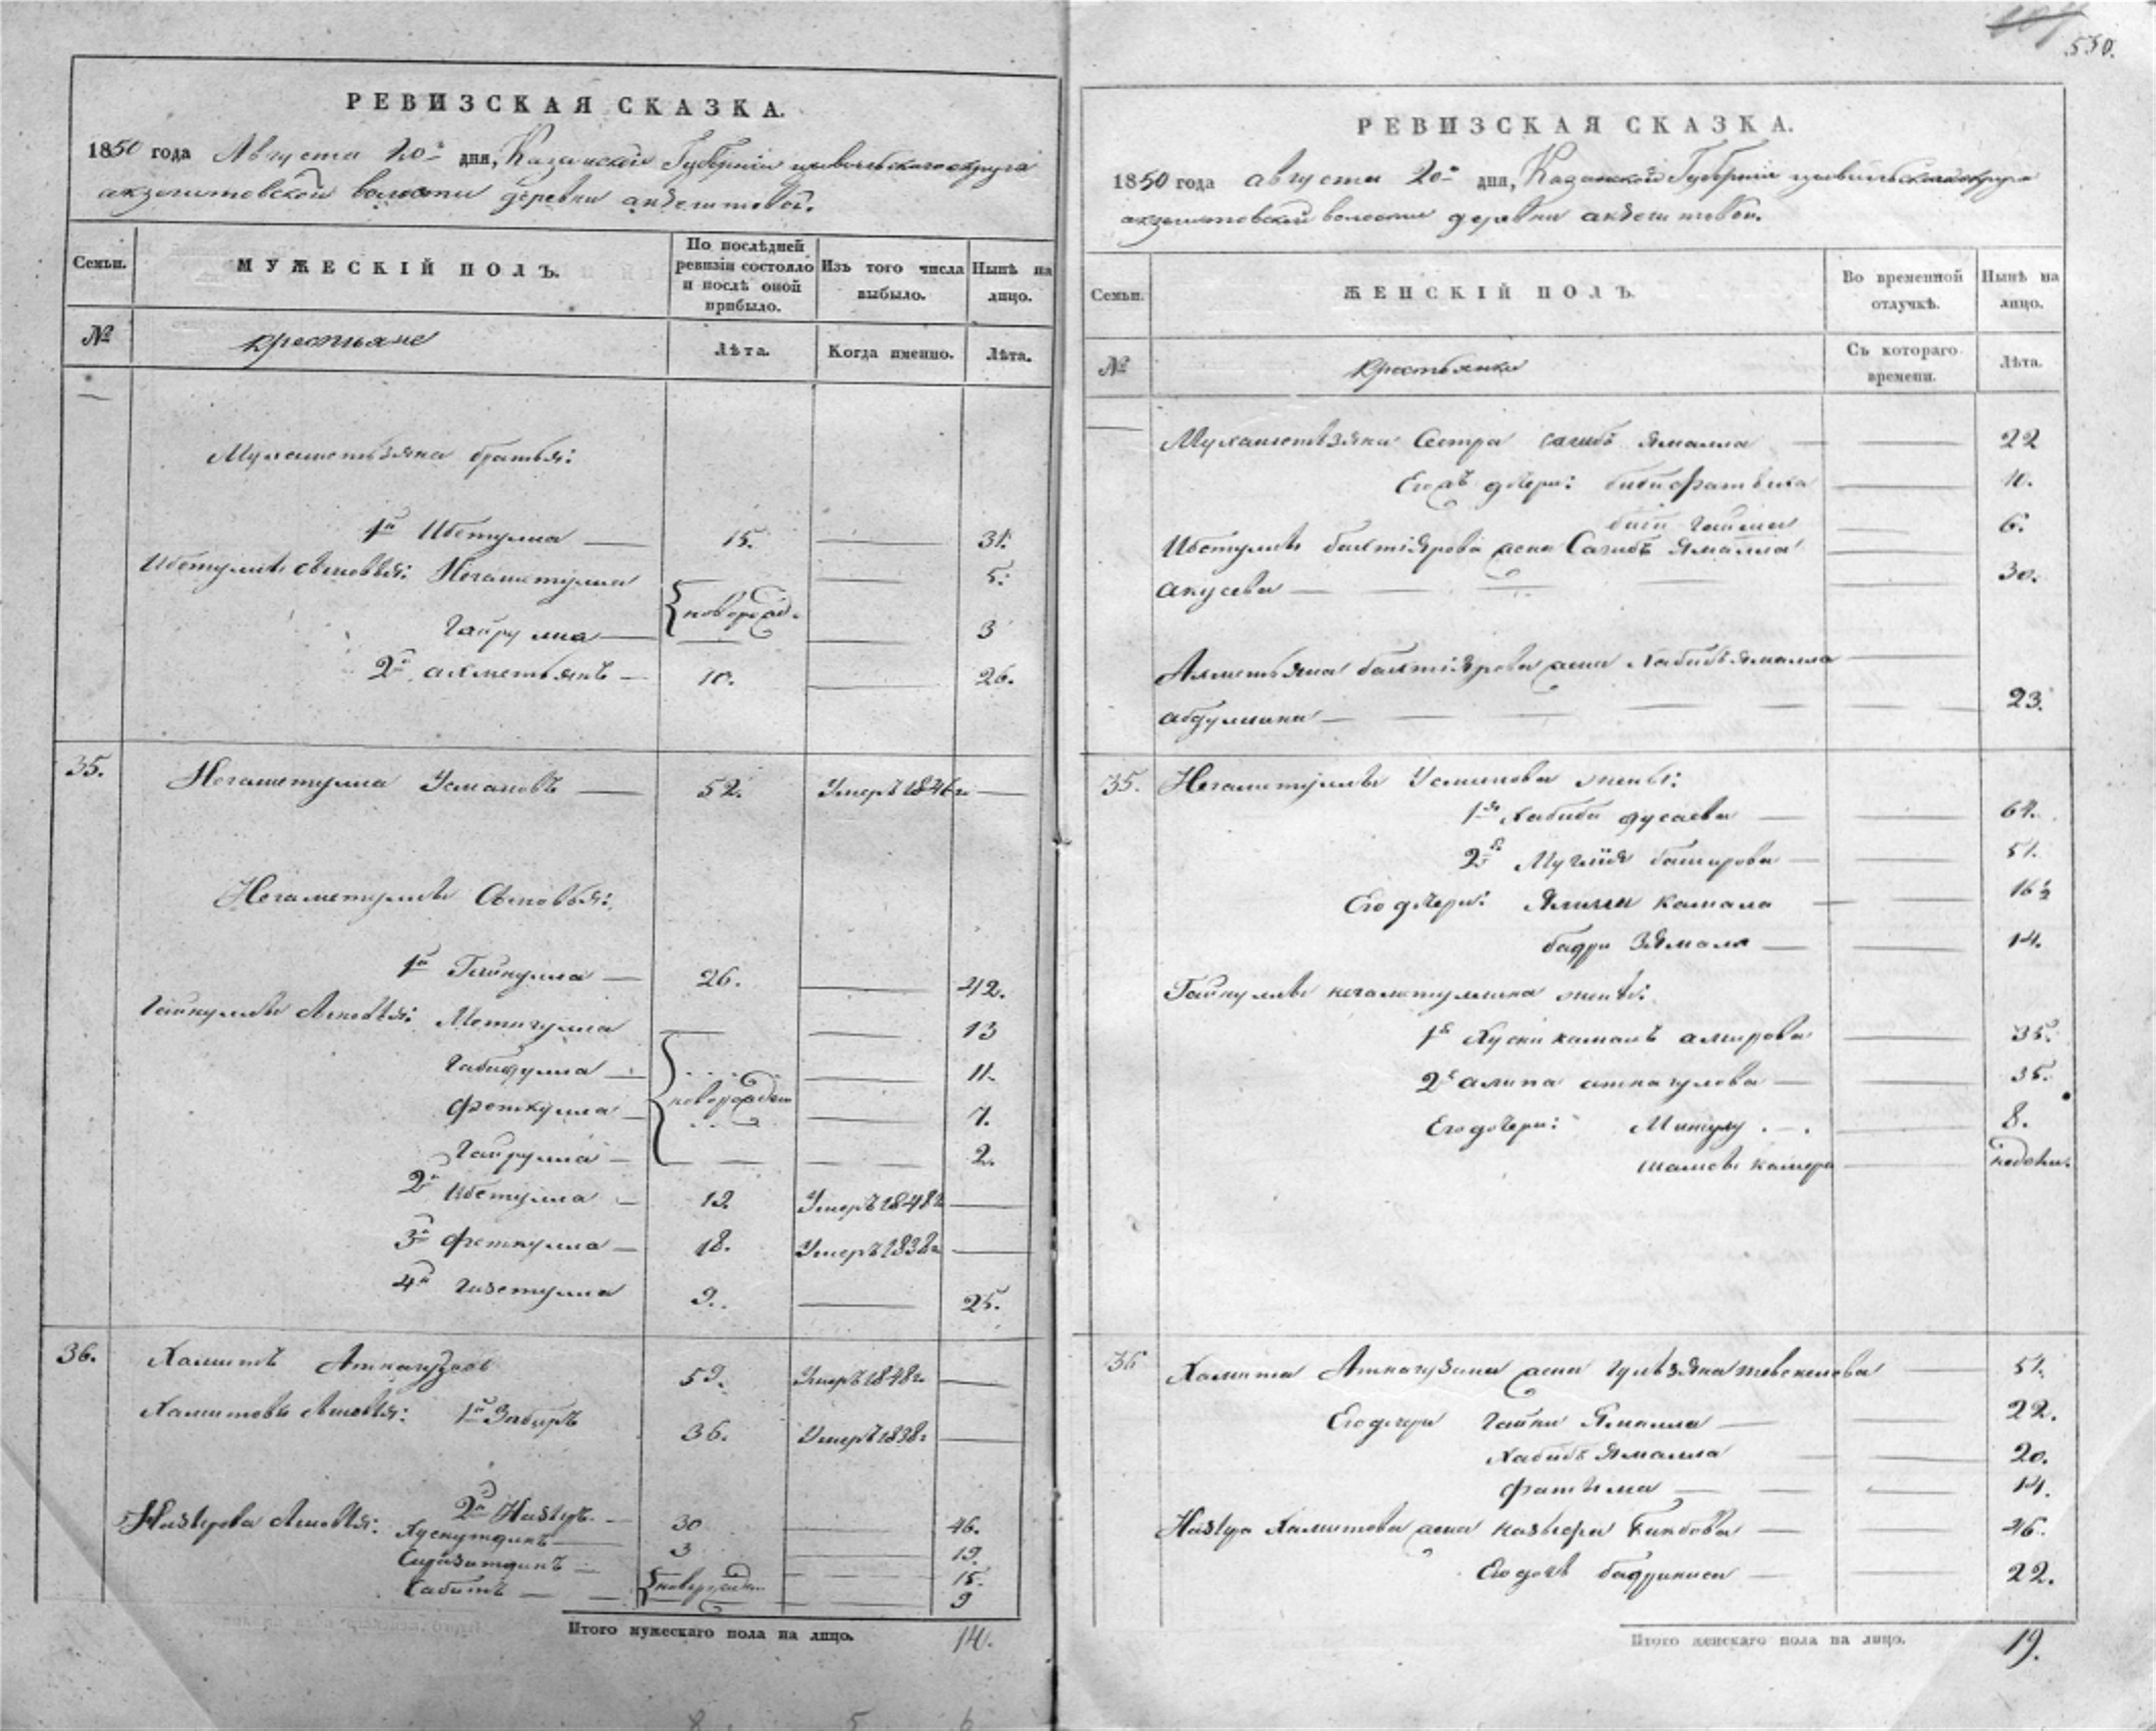 РЕВИЗСКАЯ СКАЗКА.
1850 года Августа 20го дня, Казанской Губернии Цивильского округа
акзегитовской волости деревни акзегитовой.
Семьи.
МУЖЕСКІЙ ПОЛЪ.
По послѣдней ревизіи состояло и послѣ оной прибыло.
Изъ того числа выбыло.
Нынѣ на лицо.
№
крестьяне
Лѣта.
Когда именно.
Лѣта.
Мухаметьзяна братья:
1й Ибетулла 15. 31.
Ибетуллы сыновья: Негаметулла 5.
новорожд.
Хайрулла 3
2й ахметьянъ 10. 26.
35. Негаметулла Усмановъ 52. Умеръ 1846г.
Негаметуллы Сыновья:
1й Гайнулла 26. 42.
Гайнуллы Сыновья: 13
Габидулла 11.
новорожден
Феткулла 7.
Хайрулла 2.
2й Ибетулла 19. Умеръ 1848г
3й Феткулла 18. Умеръ 1838г
4й Гизетулла 9. 25.
36. Хамитъ 59. Умеръ 1848г.
Хамитовы Сыновья: 1й Забиръ 36. Умеръ 1838г
2й Назыръ 30 46.
Назырова Сыновья: Хуснутдинъ 3 19.
Сиразитдинъ 15.
новорожден
Сабитъ 9
Итого мужескаго пола на лицо. 14.
550.
РЕВИЗСКАЯ СКАЗКА.
1850 года августа 20го дня, Казанской Губернии Цивильского округа
акзегитовской волости деревни акзегитовой.
Семьи.
ЖЕНСКІЙ ПОЛЪ.
Во временной отлучкѣ.
Нынѣ на лицо.
№
Крестьянки
Съ котораго времени.
Лѣта.
Мухаметьзяна Сестра сагибъ ямалла 22
Его дочери: бибифатыха 10.
6.
Ибетуллы бахтіярова жена Сагибъ Ямалла
акусева 30.
Ахметьяна бахтіярова жена Хабибъ ямалла
абдуллина 23.
35. Негаметуллы Усманова жены:
1я Хабиба мусаева 64.
2я баширова 51.
Его дочери: камала 16½
бадри Зямалъ 14.
Гайнуллы негаметуллина жены:
1я Хусникамалъ амирова 35.
2я алима аткагулова 35.
Его дочери: 8.
шамсы камеря недели.
36 Хамита жена гульзяна тевекелова 51.
Его дочери Гайни Ямалла 22.
Хабибъ Ямалла 20.
Фатыма 14.
Назыра Хамитова жена 46.
Его дочь бадриниса 22.
Итого женскаго пола на лицо. 19.